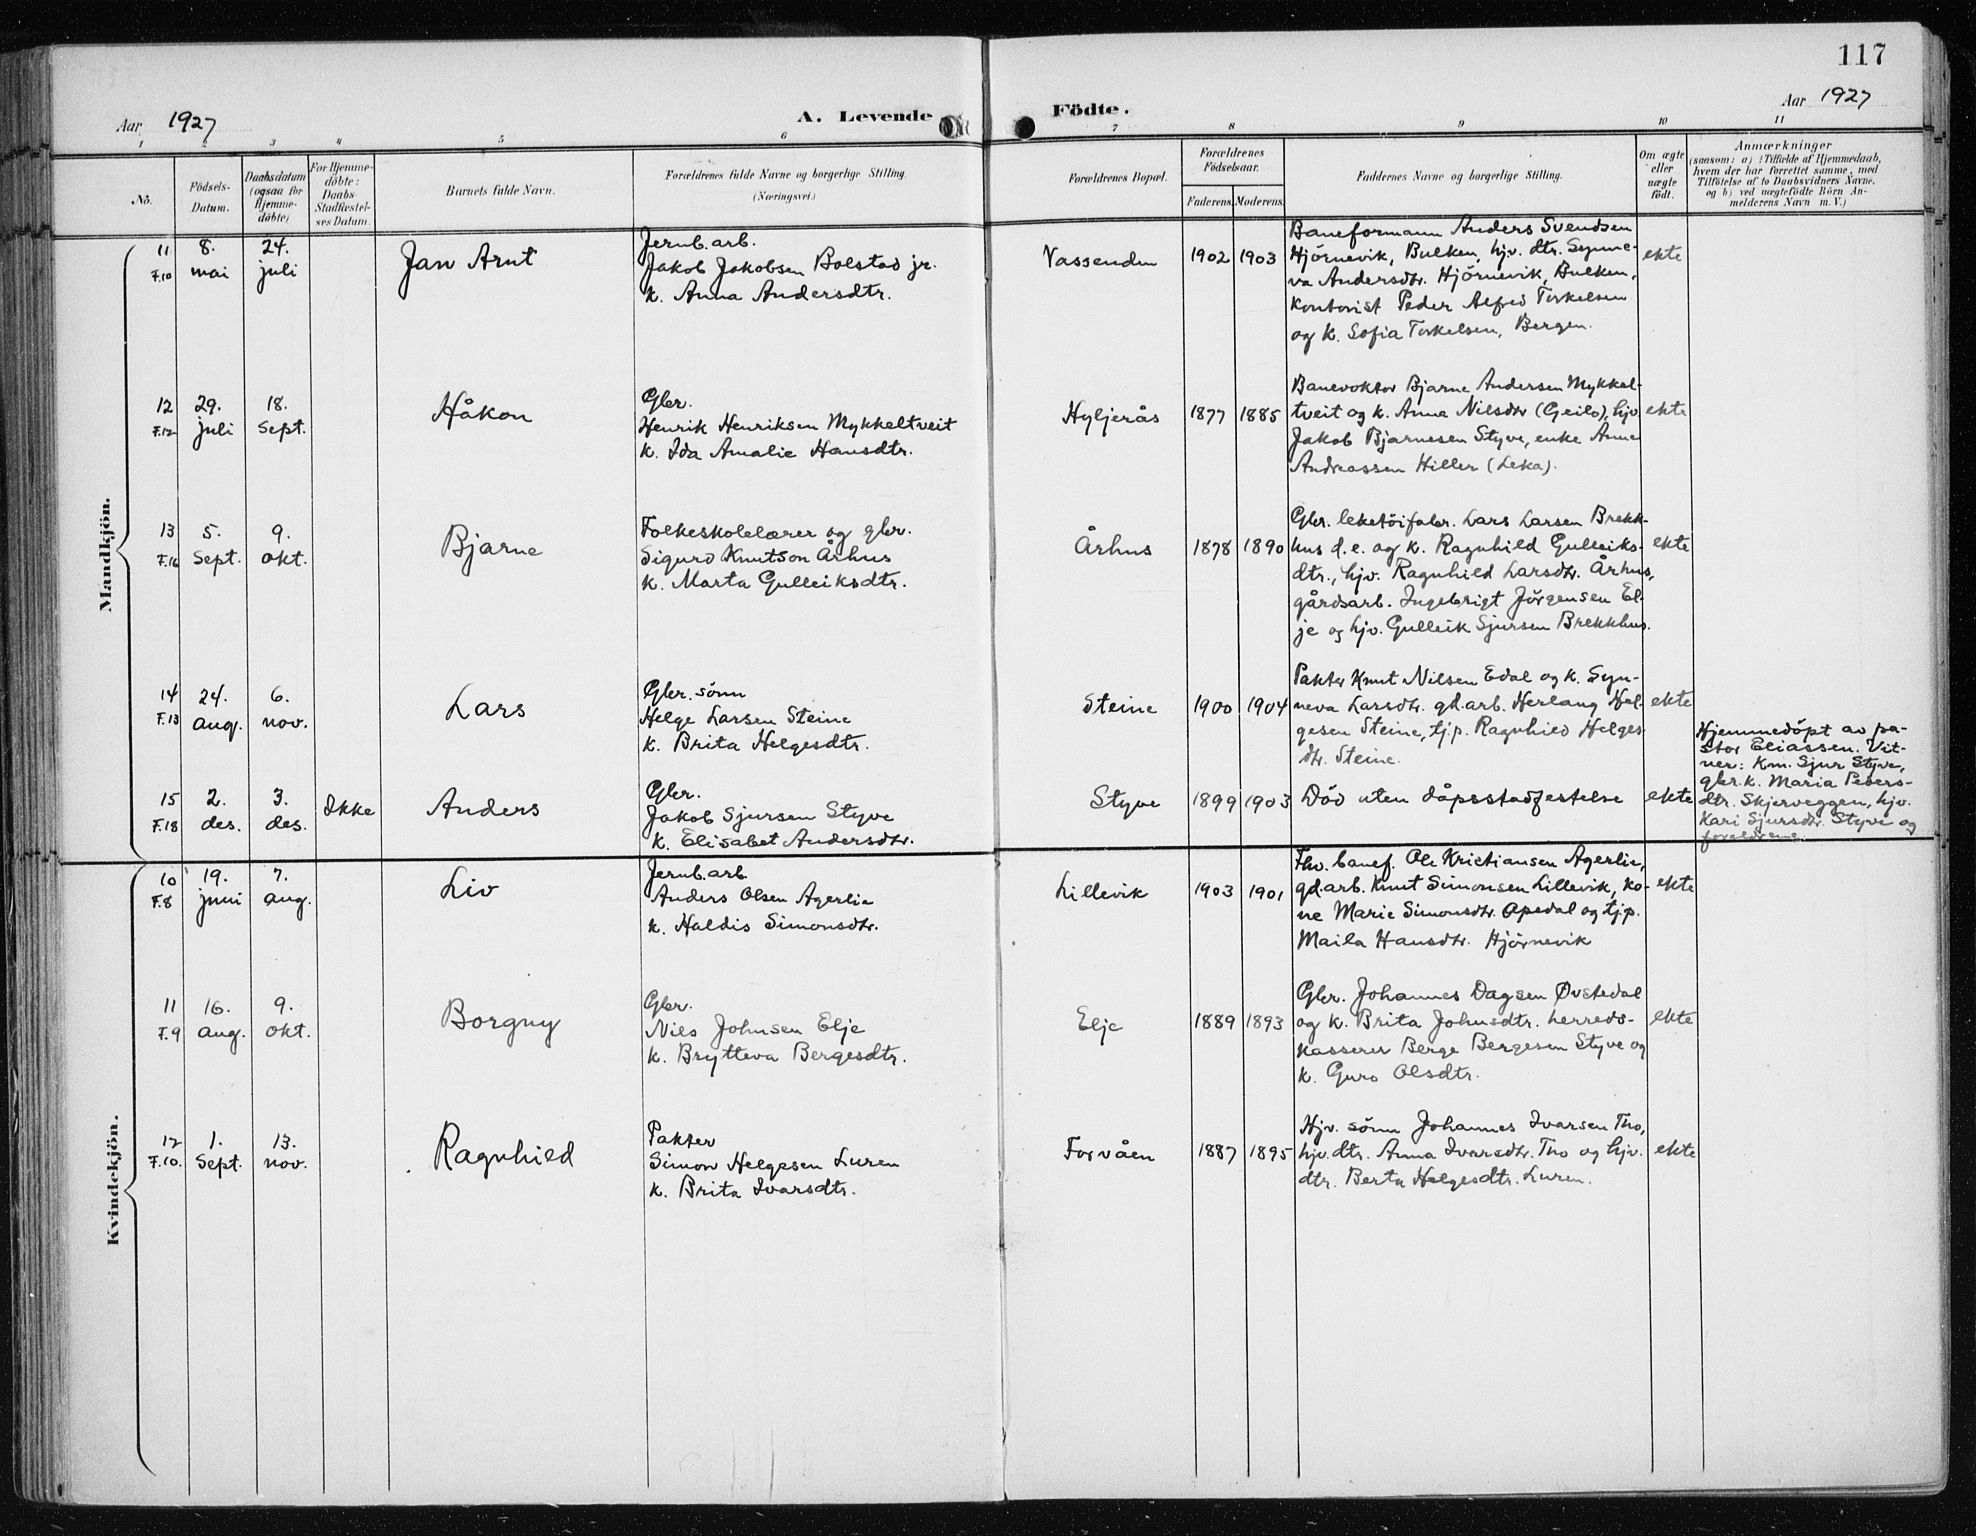 117
Aar 1927
A. Levende Födte.
Aar 1927
1 2 3 4 5 6 7 8 9 10 11
No.
Födsels-
Datum.
Daabsdatum
(ogsaa for
Hjemme-
döbte)
For Hjemme-
döbte:
Daabs
Stadfæstel-
ses Datum.
Barnets fulde Navn.
Forældrenes fulde Navne og borgerlige Stilling.
(Næringsvei.)
Forældrenes Bopæl.
Forældrenes
Födselsaar.
Faderens. Moderens.
Faddernes Navne og borgerlige Stilling.
Om ægte
eller
uægte
födt.
Anmærkninger
(saasom: a) i Tilfælde af Hjemmedaab,
hvem der har forrettet samme, med
Tilföielse af to Daabsvidners Navne,
og b) ved uægtefödte Börn An-
melderens Navn m. V.)
Mandkjön.
11
F.10
8.
mai
24.
juli
Jan Arnt
Jernb.arb.
Jakob Jakobsen Bolstad jr.
k. Anna Andersdtr.
Vassenden
1902 1903
Baneformann Anders Svendsen
Hjörnevik, Bulken, hjv. dtr. Synne-
va Andersdtr. Hjörnevik, Bulken,
kontorist Peder Alfred Torkelsen
og k. Sofia Torkelsen, Bergen.
ekte
12
F.12
29.
juli
18.
Sept.
Håkon
Gbr.
Henrik Henriksen Mykkeltveit
k. Ida Amalie Hansdtr.
Hyljerås
1877 1885
Banevoktor Bjarne Andersen Mykkel-
tveit og k. Anna Nilsdtr (Geilo), hjv.
Jakob Bjarnesen Styve, enke Anna
Andreassen Hiller (Leka).
ekte
13
F.16
5.
Sept.
9.
okt.
Bjarne
Folkeskolelærer og gbr.
Sigurd Knutson Århus
k. Marta Gulleiksdtr.
Århus
1878 1890
Gbr. leketöifabr. Lars Larsen Brekk-
hus d.e. og k. Ragnhild Gulleiks-
dtr., hjv. Ragnhild Larsdtr. Århus,
gårdsarb. Ingebrigt Jörgensen El-
je og hjv. Gulleik Sjursen Brekkhus.
ekte
14
F.13
24.
aug.
6.
nov.
Lars
Gbr. sönn
Helge Larsen Steine
k. Brita Helgesdtr.
Steine
1900 1904
Pakter Knut Nilsen Edal og k. Syn-
neva Larsdtr. gd.arb. Herlaug Hel-
gesen Steine, tj.p. Ragnhild Helges
dtr. Steine.
ekte
15
F.18
2.
des.
3.
des.
Ikke
Anders
Gbr.
Jakob Sjursen Styve
k. Elisabet Andersdtr.
Styve
1899 1903
Död uten dåpsstadfestelse
ekte
Hjemmedöpt av pa-
stor Eliassen. Vit-
ner: Km. Sjur Styve,
gbr.k. Maria Peders-
dtr. Skjerveggen, hjv.
Kari Sjursdtr. Styve og
foreldrene.
Kvindekjön.
10
F.8
19.
juni
7.
aug.
Liv
Jernb.arb.
Anders Olsen Agerlie
k. Haldis Simonsdtr.
Lillevik
1903 1901
Fhv. banef. Ole Kristiansen Agerlie,
gd.arb. Knut Simonsen Lillevik, ko-
ne Marie Simonsdtr. Opedal og tj.p.
Maila Hansdtr. Hjörnevik
ekte
11
F.9
16.
aug.
9.
okt.
Borgny
Gbr.
Nils Johnsen Elje
k. Brytteva Bergesdtr.
Elje
1889 1893
Gbr. Johannes Dagsen Øvstedal
og k. Brita Johnsdtr. herreds-
kasserer Berge Bergesen Styve og
k. Guro Olsdtr.
ekte
12
F.10.
1.
Sept.
13.
nov.
Ragnhild
Pakter
Simon Helgesen Luren
k. Brita Ivarsdtr.
Forvåen
1887 1895
Hjv. sönn Johannes Ivarsen Tho,
hjv. dtr. Anna Ivarsdtr. Tho og hjv.
dtr. Berta Helgesdtr. Luren.
ekte